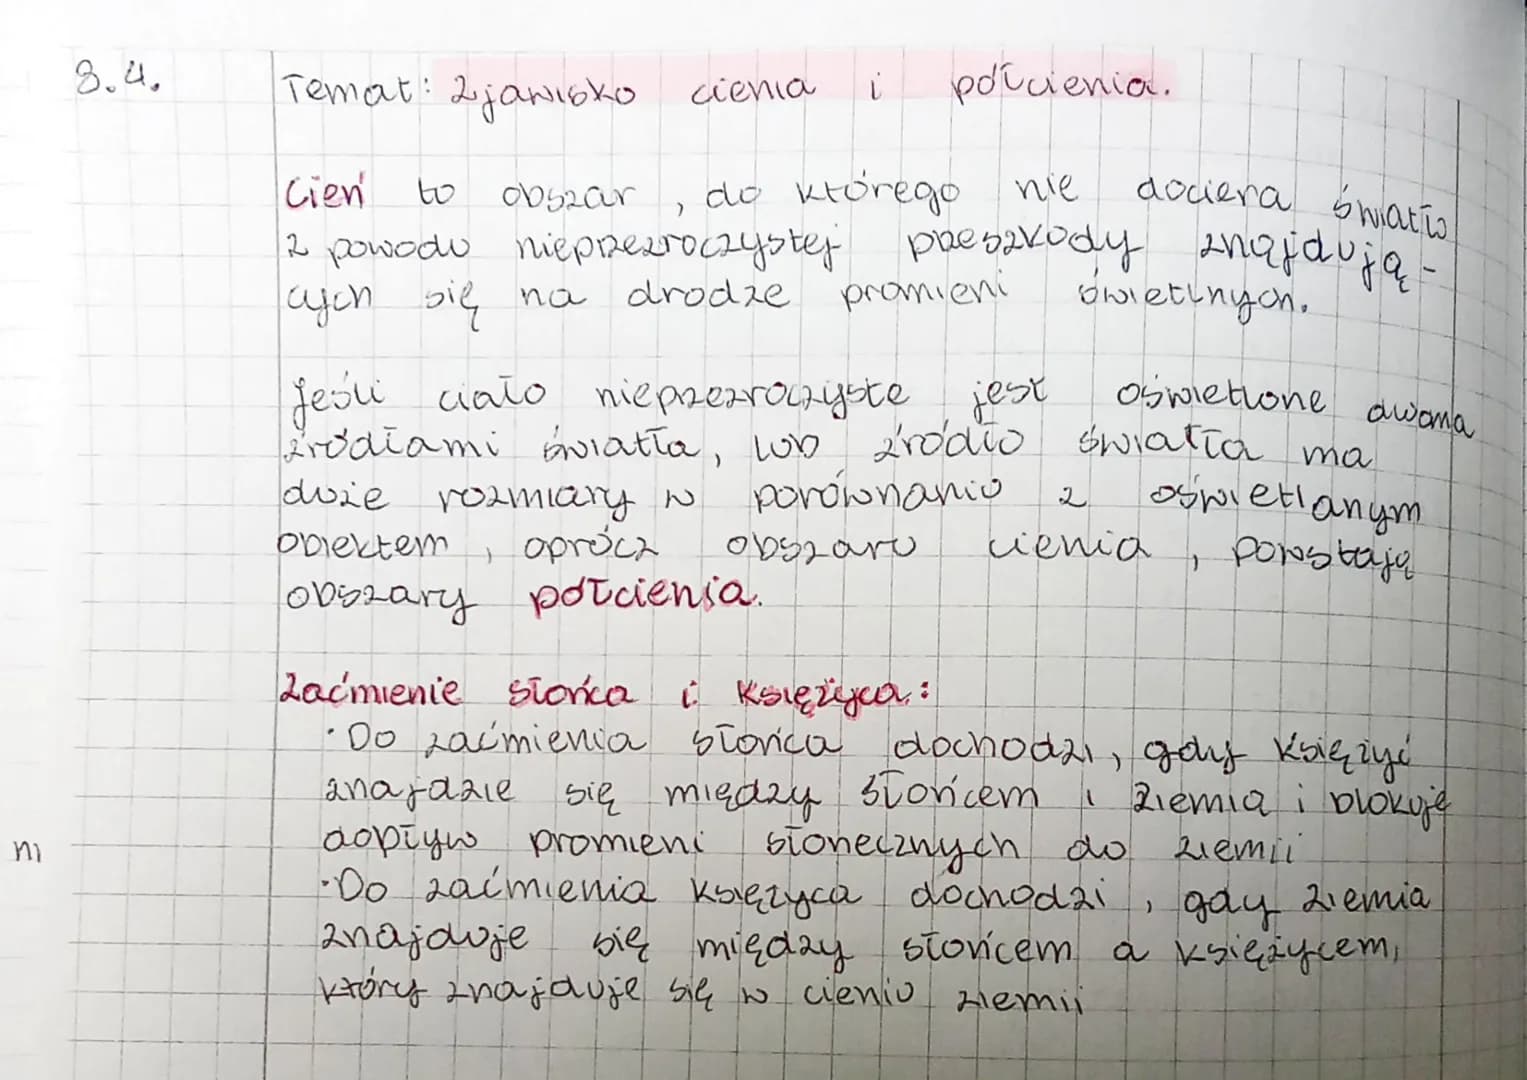 8.4.
Temat: Zjawisko cienia i półcienia.
Cień to obszar, do którego nie dociera światło
z powodu nieprzezroczystej przeszkody znajdują-
cych się na drodze promieni świetlnych.
Jeśli ciało nieprzezroczyste jest oświetlone dwoma
źródłami światła, lub źródło światła ma
duże rozmiary w porównaniu z oświetlanym
obiektem, oprócz obszaru cienia, powstają
obszary półcienia.
Zaćmienie słońca i Księżyca:
·Do zaćmienia słońca dochodzi, gdy Księżyć
znajdzie się między słońcem i Ziemia i blokuje
dopływ promieni słonecznych do Ziemii
·Do zaćmienia Księżyca dochodzi, gdy Ziemia
znajduje się między słońcem a księżycem,
który znajduje się w cieniu Ziemii